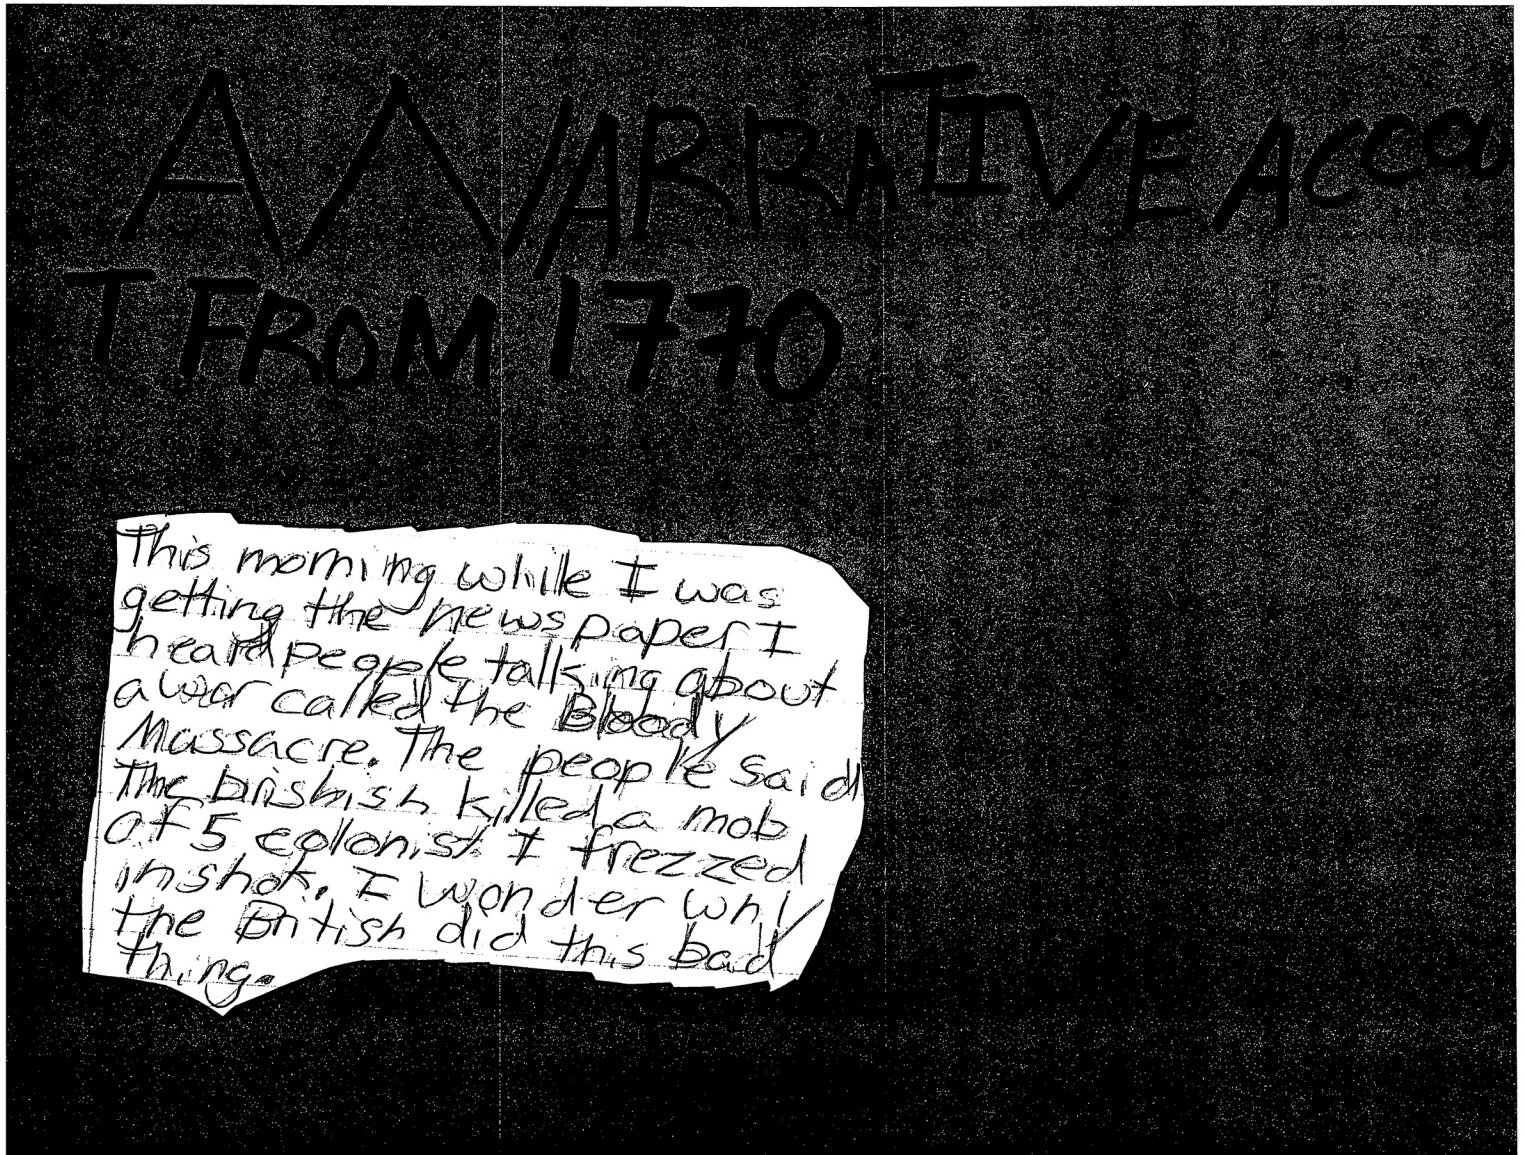 A NARRATIVE ACCOU
T FROM 1770
This morning while I was
getting the newspaper I
heard people talking about
a war called the Bloody
Massacre. The people said
the brisbish killed a mob
of 5 colonist. I frezzed
in shok. I wonder why
the British did this bad
thing.